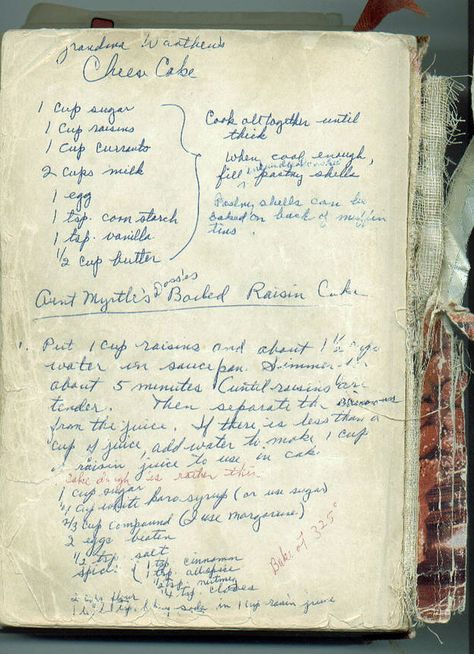 Grandma Warthew's
Cheese Cake
1 cup sugar
1 cup raisins
1 cup currants
2 cups milk
1 egg
1 tsp. corn starch
1 tsp. vanilla
1/2 cup butter
Cook altogether until
thick
When cool enough,
fill pastry shells
Pastry shells can be
baked on back of muffin
tins.
Aunt Myrtle's Boiled Raisin Cake
1. Put 1 cup raisins and about 1 1/2 cups
water in sauce pan. Simmer
about 5 minutes (until raisins are
tender. Then separate the
from the juice. If there is less than a
cup of juice, add water to make 1 cup
of raisin juice to use in cake
Cake dough is rather thin
1 cup sugar
1 cup white karo syrup (or use sugar)
2/3 cup compound (I use margarine)
2 eggs beaten
1/2 tsp. salt
spice (1 tsp. cinnamon
1 tsp. allspice
1/2 tsp. nutmeg
1/4 tsp. cloves
Bake at 325°
flour
soda in 1 cup raisin juice